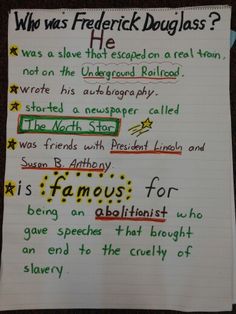 Who was Frederick Douglass?
He
was a slave that escaped on a real train,
not on the Underground Railroad.
wrote his autobiography.
started a newspaper called
The North Star
was friends with President Lincoln and
Susan B. Anthony.
is famous for
being an abolitionist who
gave speeches that brought
an end to the cruelty of
slavery.